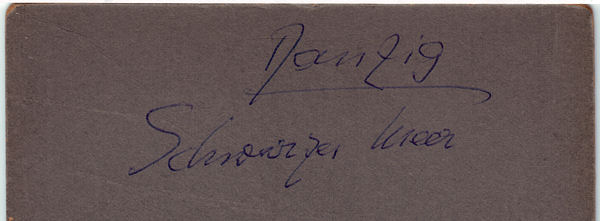 Danzig
Schwarzes Meer